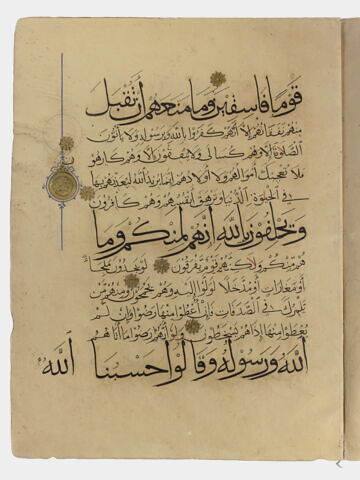 قوما فاسقين وما منعهم أن تقبل
منهم نفقاتهم إلا أنهم كفروا بالله وبرسوله ولا يأتون
الصلوة إلا وهم كسالى ولا ينفقون إلا وهم كارهون
فلا تعجبك أموالهم ولا أولادهم إنما يريد الله ليعذبهم بها
في الحيوة الدنيا وتزهق أنفسهم وهم كافرون
ويحلفون بالله إنهم لمنكم وما
هم منكم ولاكنهم قوم يفرقون لو يجدون ملجأ
أو مغارات أو مدخلا لولوا إليه وهم يجمحون ومنهم من
يلمزك في الصدقات فإن أعطوا منها رضوا وإن لم
يعطوا منها إذا هم يسخطون ولو أنهم رضوا ما أتاهم
الله ورسوله وقالوا حسبنا الله